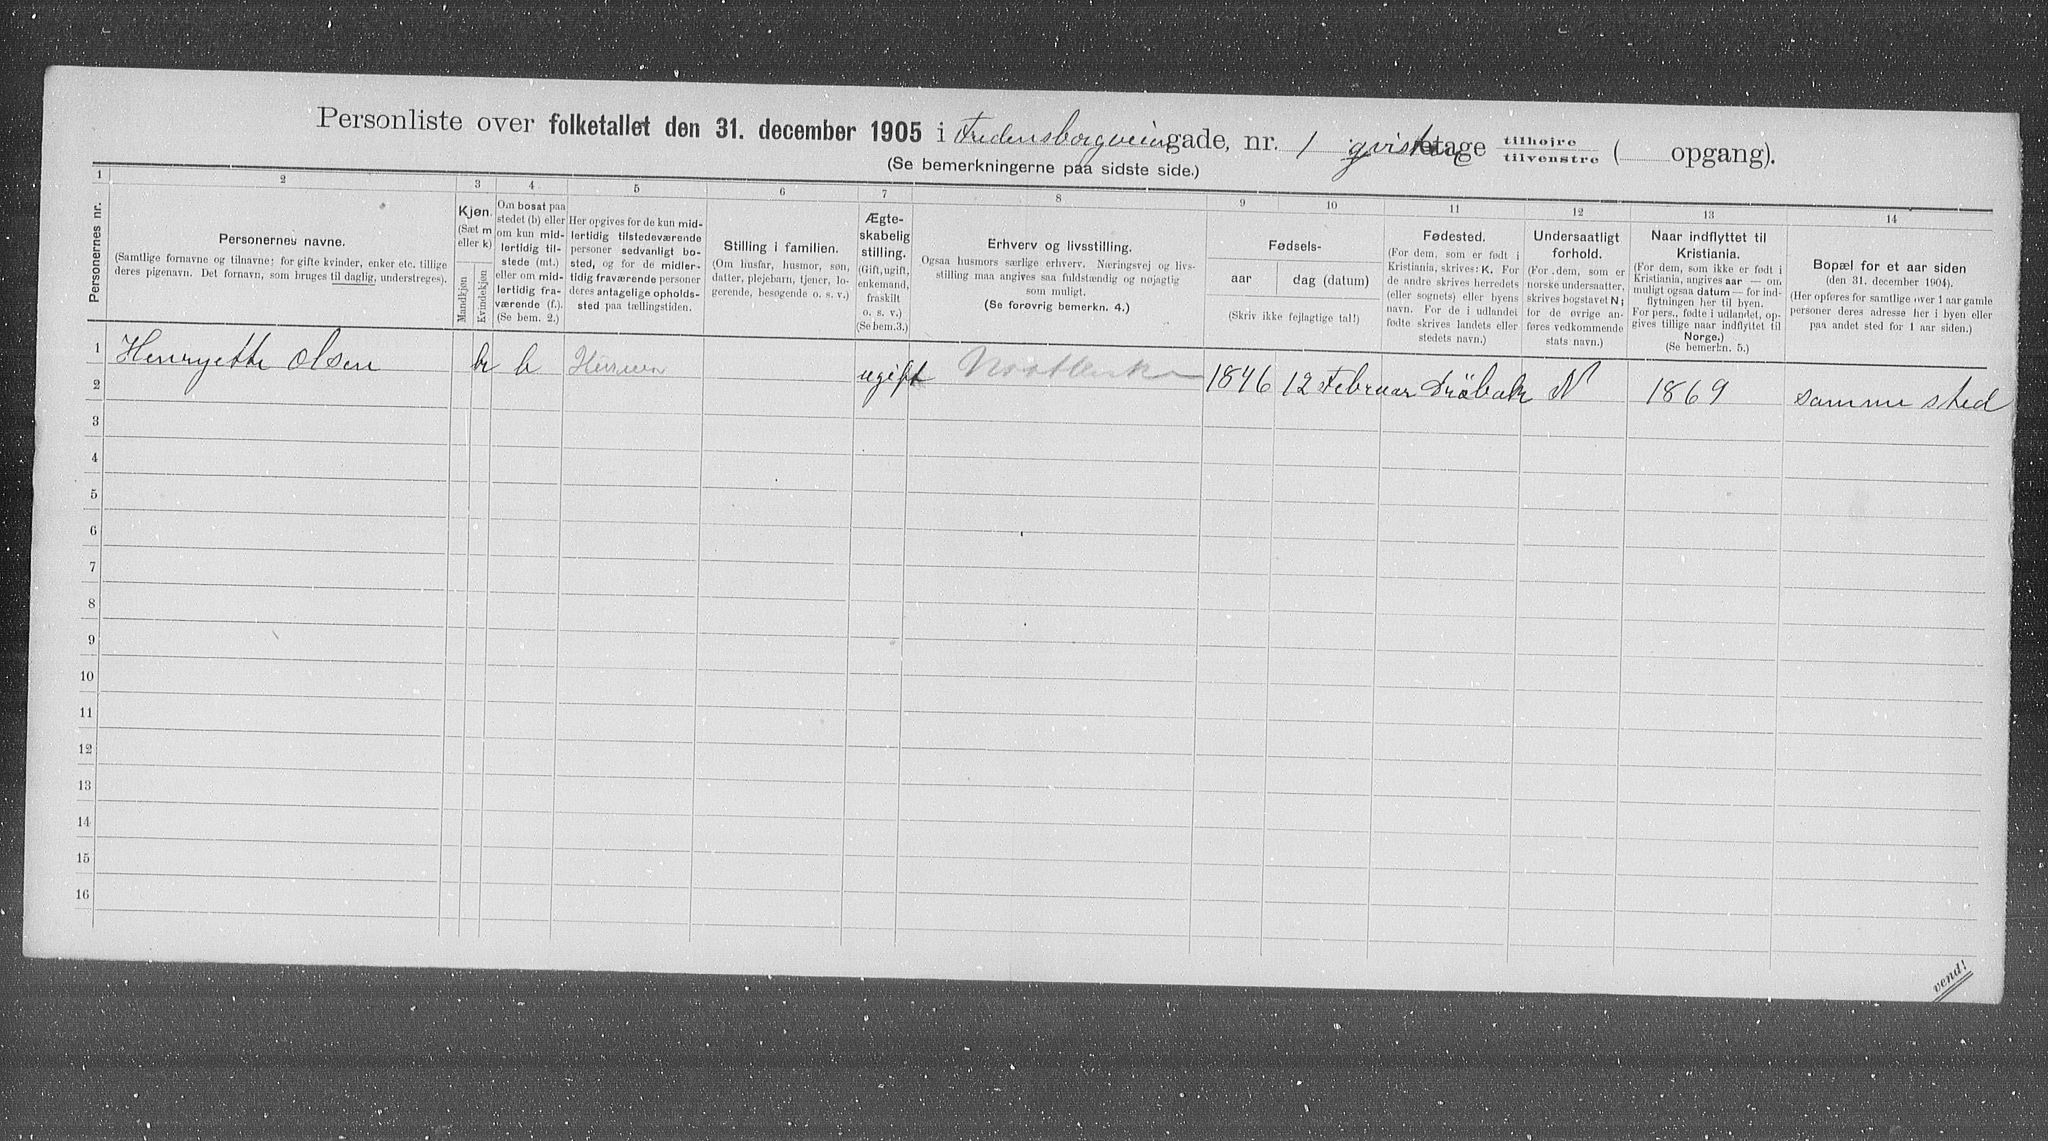 Personliste over folketallet den 31. december 1905 i Fredensborgveien gade, nr. 1 qvist etage tilhøjre / tilvenstre ( opgang).
(Se bemerkningerne paa sidste side.)
1 2 3 4 5 6 7 8 9 10 11 12 13 14
Personernes nr.
Personernes navne.
(Samtlige fornavne og tilnavne; for gifte kvinder, enker etc. tillige
deres pigenavn. Det fornavn, som bruges til daglig, understreges).
Kjøn.
(Sæt m
eller k)
Mandkjøn
Kvindekjøn
Om bosat paa
stedet (b) eller
om kun mid-
lertidig til-
stede (mt.)
eller om mid-
lertidig fra-
værende (f.).
(Se bem. 2.)
Her opgives for de kun mid-
lertidig tilstedeværende
personer sedvanligt bo-
sted, og for de midler-
tidig fraværende personer
deres antagelige opholds-
sted paa tællingstiden.
Stilling i familien.
(Om husfar, husmor, søn,
datter, plejebarn, tjener, lo-
gerende, besøgende o. s. v.)
Ægte-
skabelig
stilling.
(Gift, ugift,
enkemand,
fraskilt
o. s. v.)
(Se bem. 3.)
Erhverv og livsstilling.
Ogsaa husmors særlige erhverv. Næringsvej og livs-
stilling maa angives saa fuldstændig og nøjagtig
som muligt.
(Se forøvrig bemerkn. 4.)
Fødsels-
aar
dag (datum)
(Skriv ikke fejlagtige tal!)
Fødested.
(For dem, som er født i
Kristiania, skrives: K. For
de andre skrives herredets
(eller sognets) eller byens
navn. For de i udlandet
fødte skrives landets eller
stedets navn.)
Undersaatligt
forhold.
(For dem, som er
norske undersaatter,
skrives bogstavet N;
for de øvrige an-
føres vedkommende
stats navn.)
Naar indflyttet til
Kristiania.
(For dem, som ikke er født i
Kristiania, angives aar — om
muligt ogsaa datum — for ind-
flytningen her til byen.
For pers., fødte i udlandet, op-
gives tillige naar indflyttet til
Norge.)
(Se bemerkn. 5.)
Bopæl for et aar siden
(den 31. december 1904).
(Her opføres for samtlige over 1 aar gamle
personer deres adresse her i byen eller
paa andet sted for 1 aar siden.)
1 Henryette Olsen k b ugift 1846 12 Februar Dröbak N 1869 samme sted
2
3
4
5
6
7
8
9
10
11
12
13
14
15
16
vend!